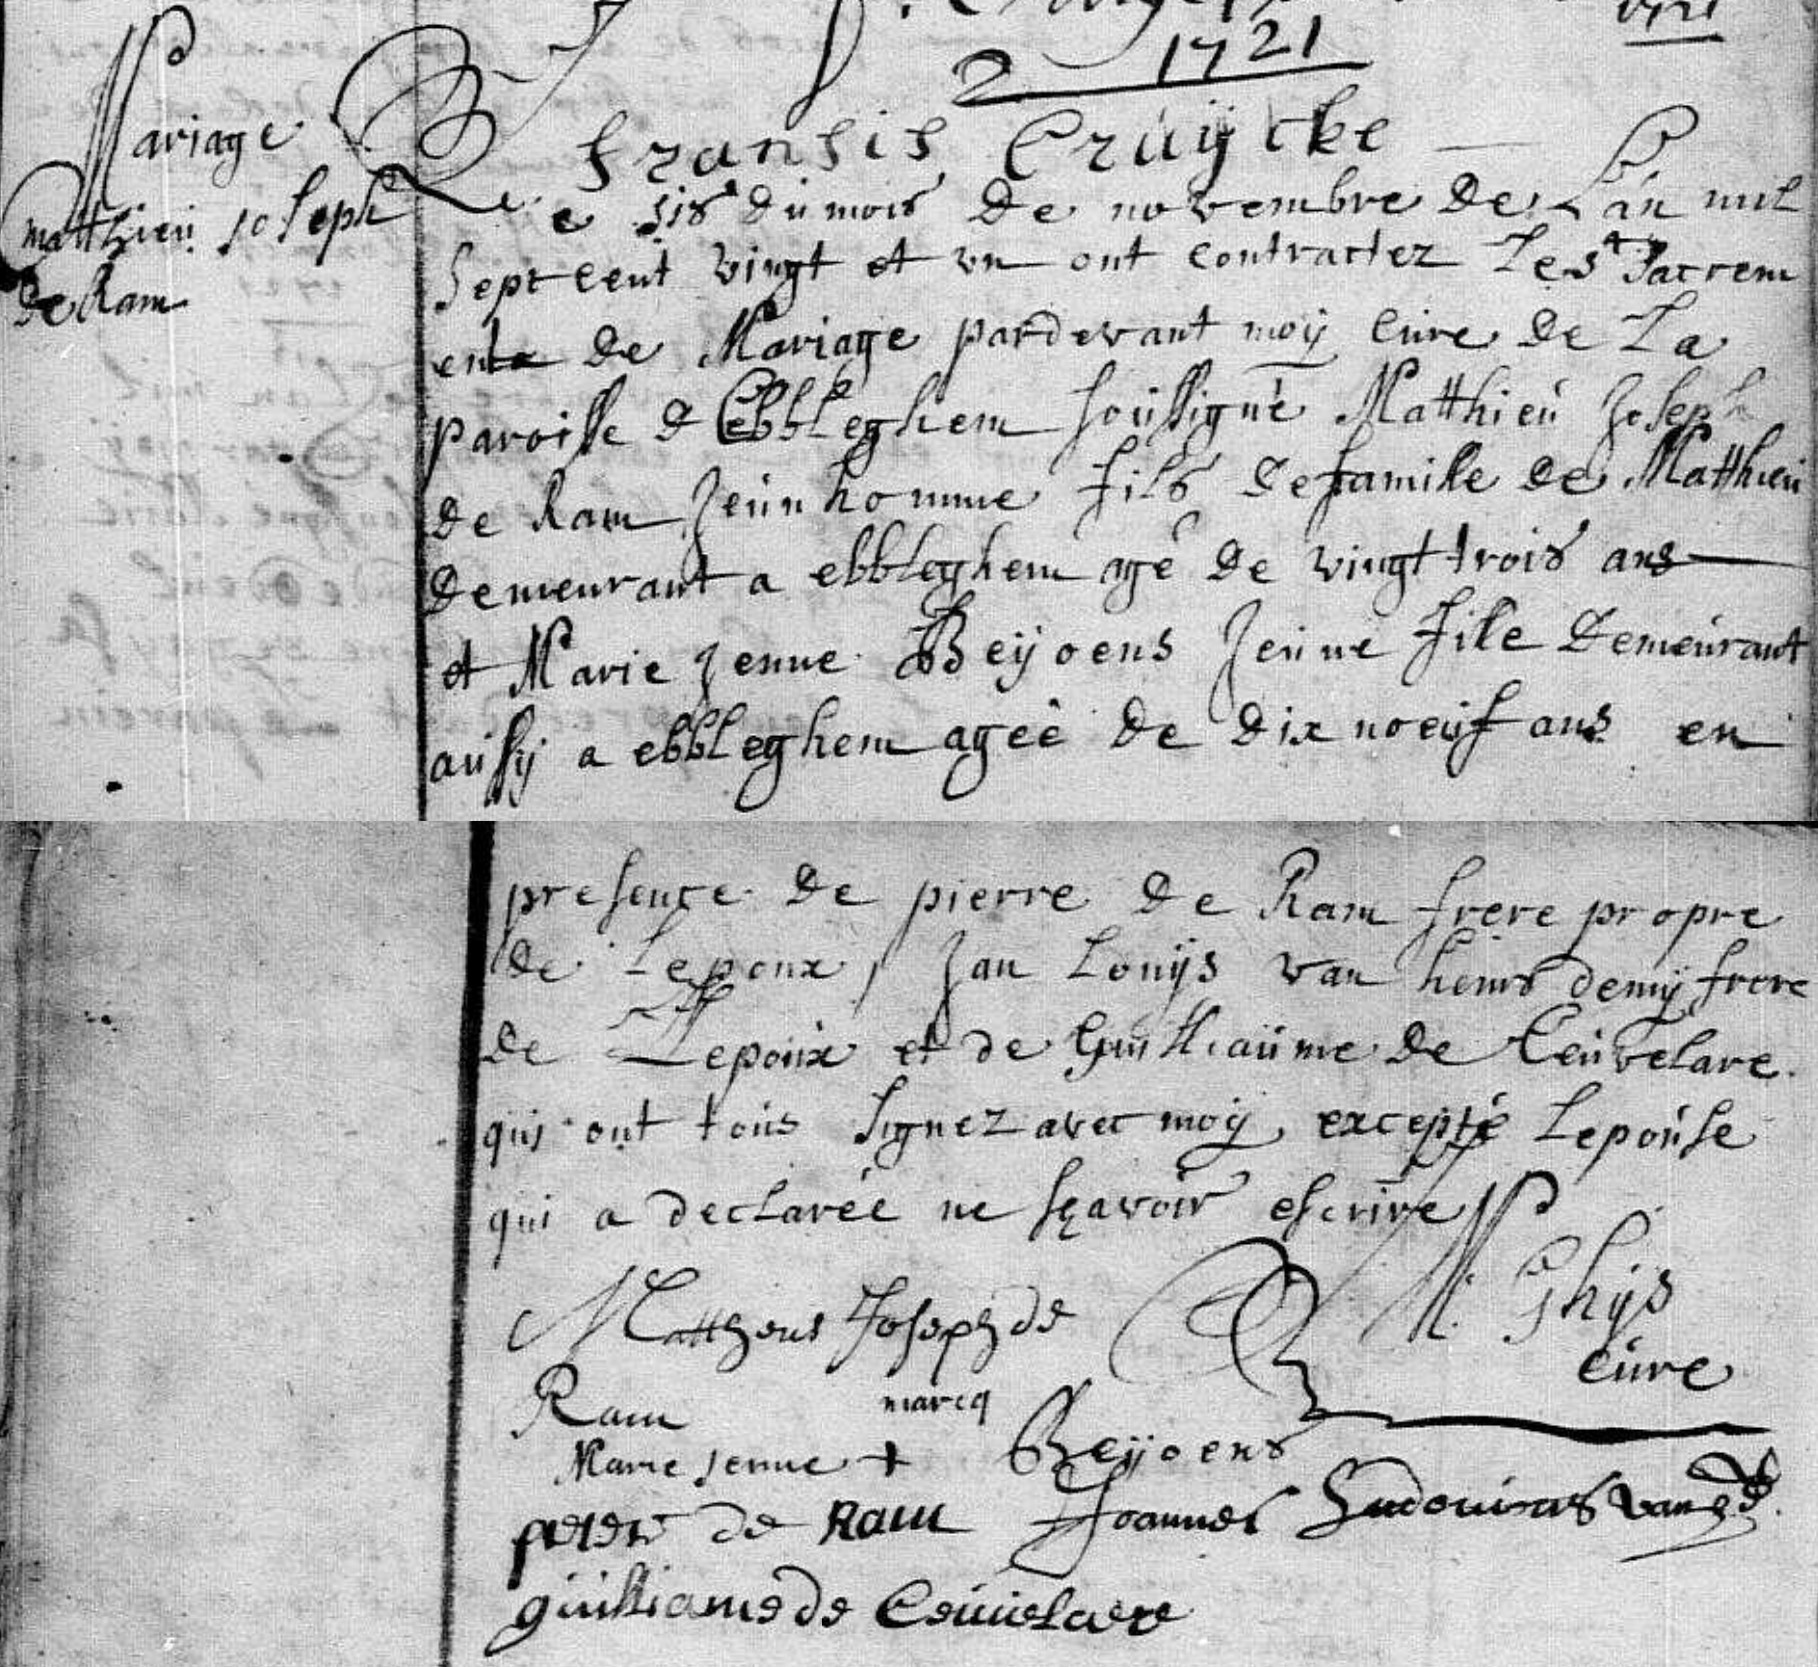 1721
2
fransis Cruÿcke
Mariage
matthieu joseph
de Ram
Le sis du mois de novembre de Lan mil
Sept cent vingt et vn ont contractez Le st Sacrem
ente de Mariage pardevant moÿ Cure de La
paroisse d Ebbleghem soussigné Matthieu Joseph
de Ram Jeun homme fils de famille de Matthieu
demeurant a ebbleghem agé de vingt trois ans
et Marie Jenne Beÿoens Jeune fille demeurant
aussÿ a ebbleghem ageé de dix noeuf ans en
presence de pierre de Ram frere propre
de Lepoux, Jan Louÿs van hems demÿ frere
de Lepoux et de Guilliaume de Ceuvelare
qui ont tous signez avec moÿ excepté Lepouse
qui a declareé ne sçavoir escrire
M. Ghÿs
Cure
Mattheus Joseph de
Ram
marcq
Marie jenne + Beÿoens
peter de Ram Joannes Ludouicus van
guilliame de Ceuuelaere